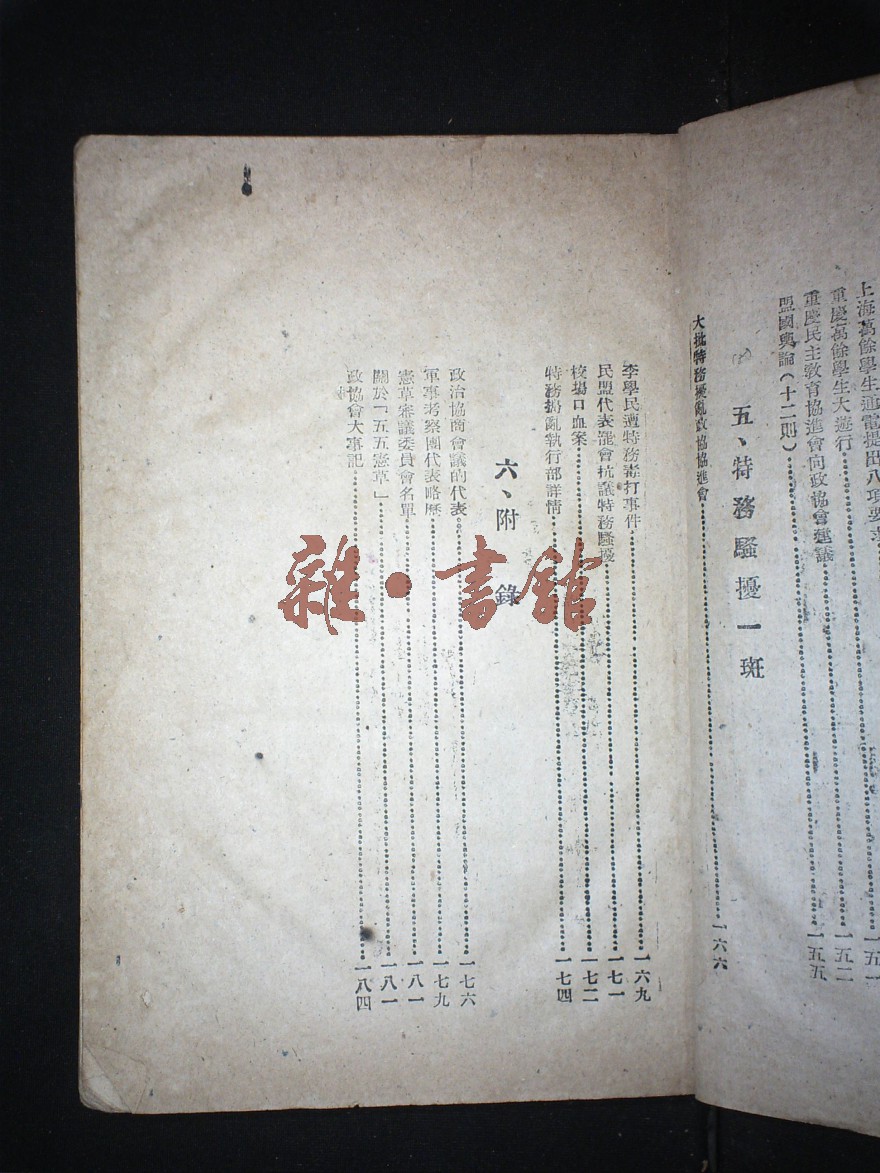 上海萬餘學生通電提出八項要求……一五一
重慶萬餘學生大遊行……一五二
重慶民主教育協進會向政協會建議……一五五
盟國輿論（十二則）……
五、特務騷擾一斑
大批特務擾亂政協協進會……一六六
李學民遭特務毒打事件……一六九
民盟代表罷會抗議特務騷擾……一七一
校場口血案……一七二
特務搗亂執行部詳情……一七四
六、附錄
政治協商會議的代表……一七六
軍事考察團代表略歷……一七九
憲草審議委員會名單……一八一
關於「五五憲草」……一八一
政協會大事記……一八四
雜·書館